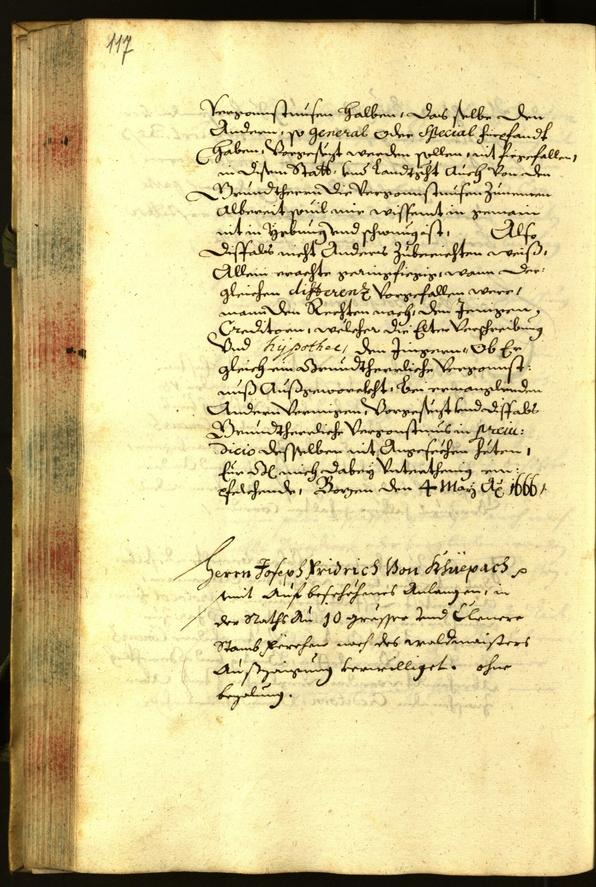 117
Vergonstnußen halben, das selbe den
Andern, so general oder special fürpfandt
haben, Vorgesezt werden sollen, nit fürgefallen,
in disem Statt- und Landtgericht Auch von den
Grundtherrn die Vergonstnußen zunemen
Albereit souil mir wissent in gemain
nit in yebung und schwung ist, Also
dißfals nicht Anders zuberichten weiß,
Allein erachte geringfiegig, wann der-
gleichen differenz Vorgefallen were,
mann den Rechten nach, den Jenigen
Creditorn, welcher die Elter Verschreibung
Und hypothec, den Jüngern, Ob Er
gleich ein Grundtherrliche Vergonst-
nuß Außgeworcht, bei ermanglenden
Andern Vermögen, Vorgesezt und dißfals
Grundtherrliche Vergonstnus in preiu-
dicio desselben nit Angesechen heten,
für mich dabey Vnterthenig em-
pfelchende, Bozen den 4 May Ao 1666,
Herrn Joseph Fridrich Von Khüepach
sein Auf beschehenes Anlangen, in
der Rathsau 10 grössere und Clenere
Stamb Lerchen nach des waldmaisters
Außzaigung bewilliget. ohne
bezalung.